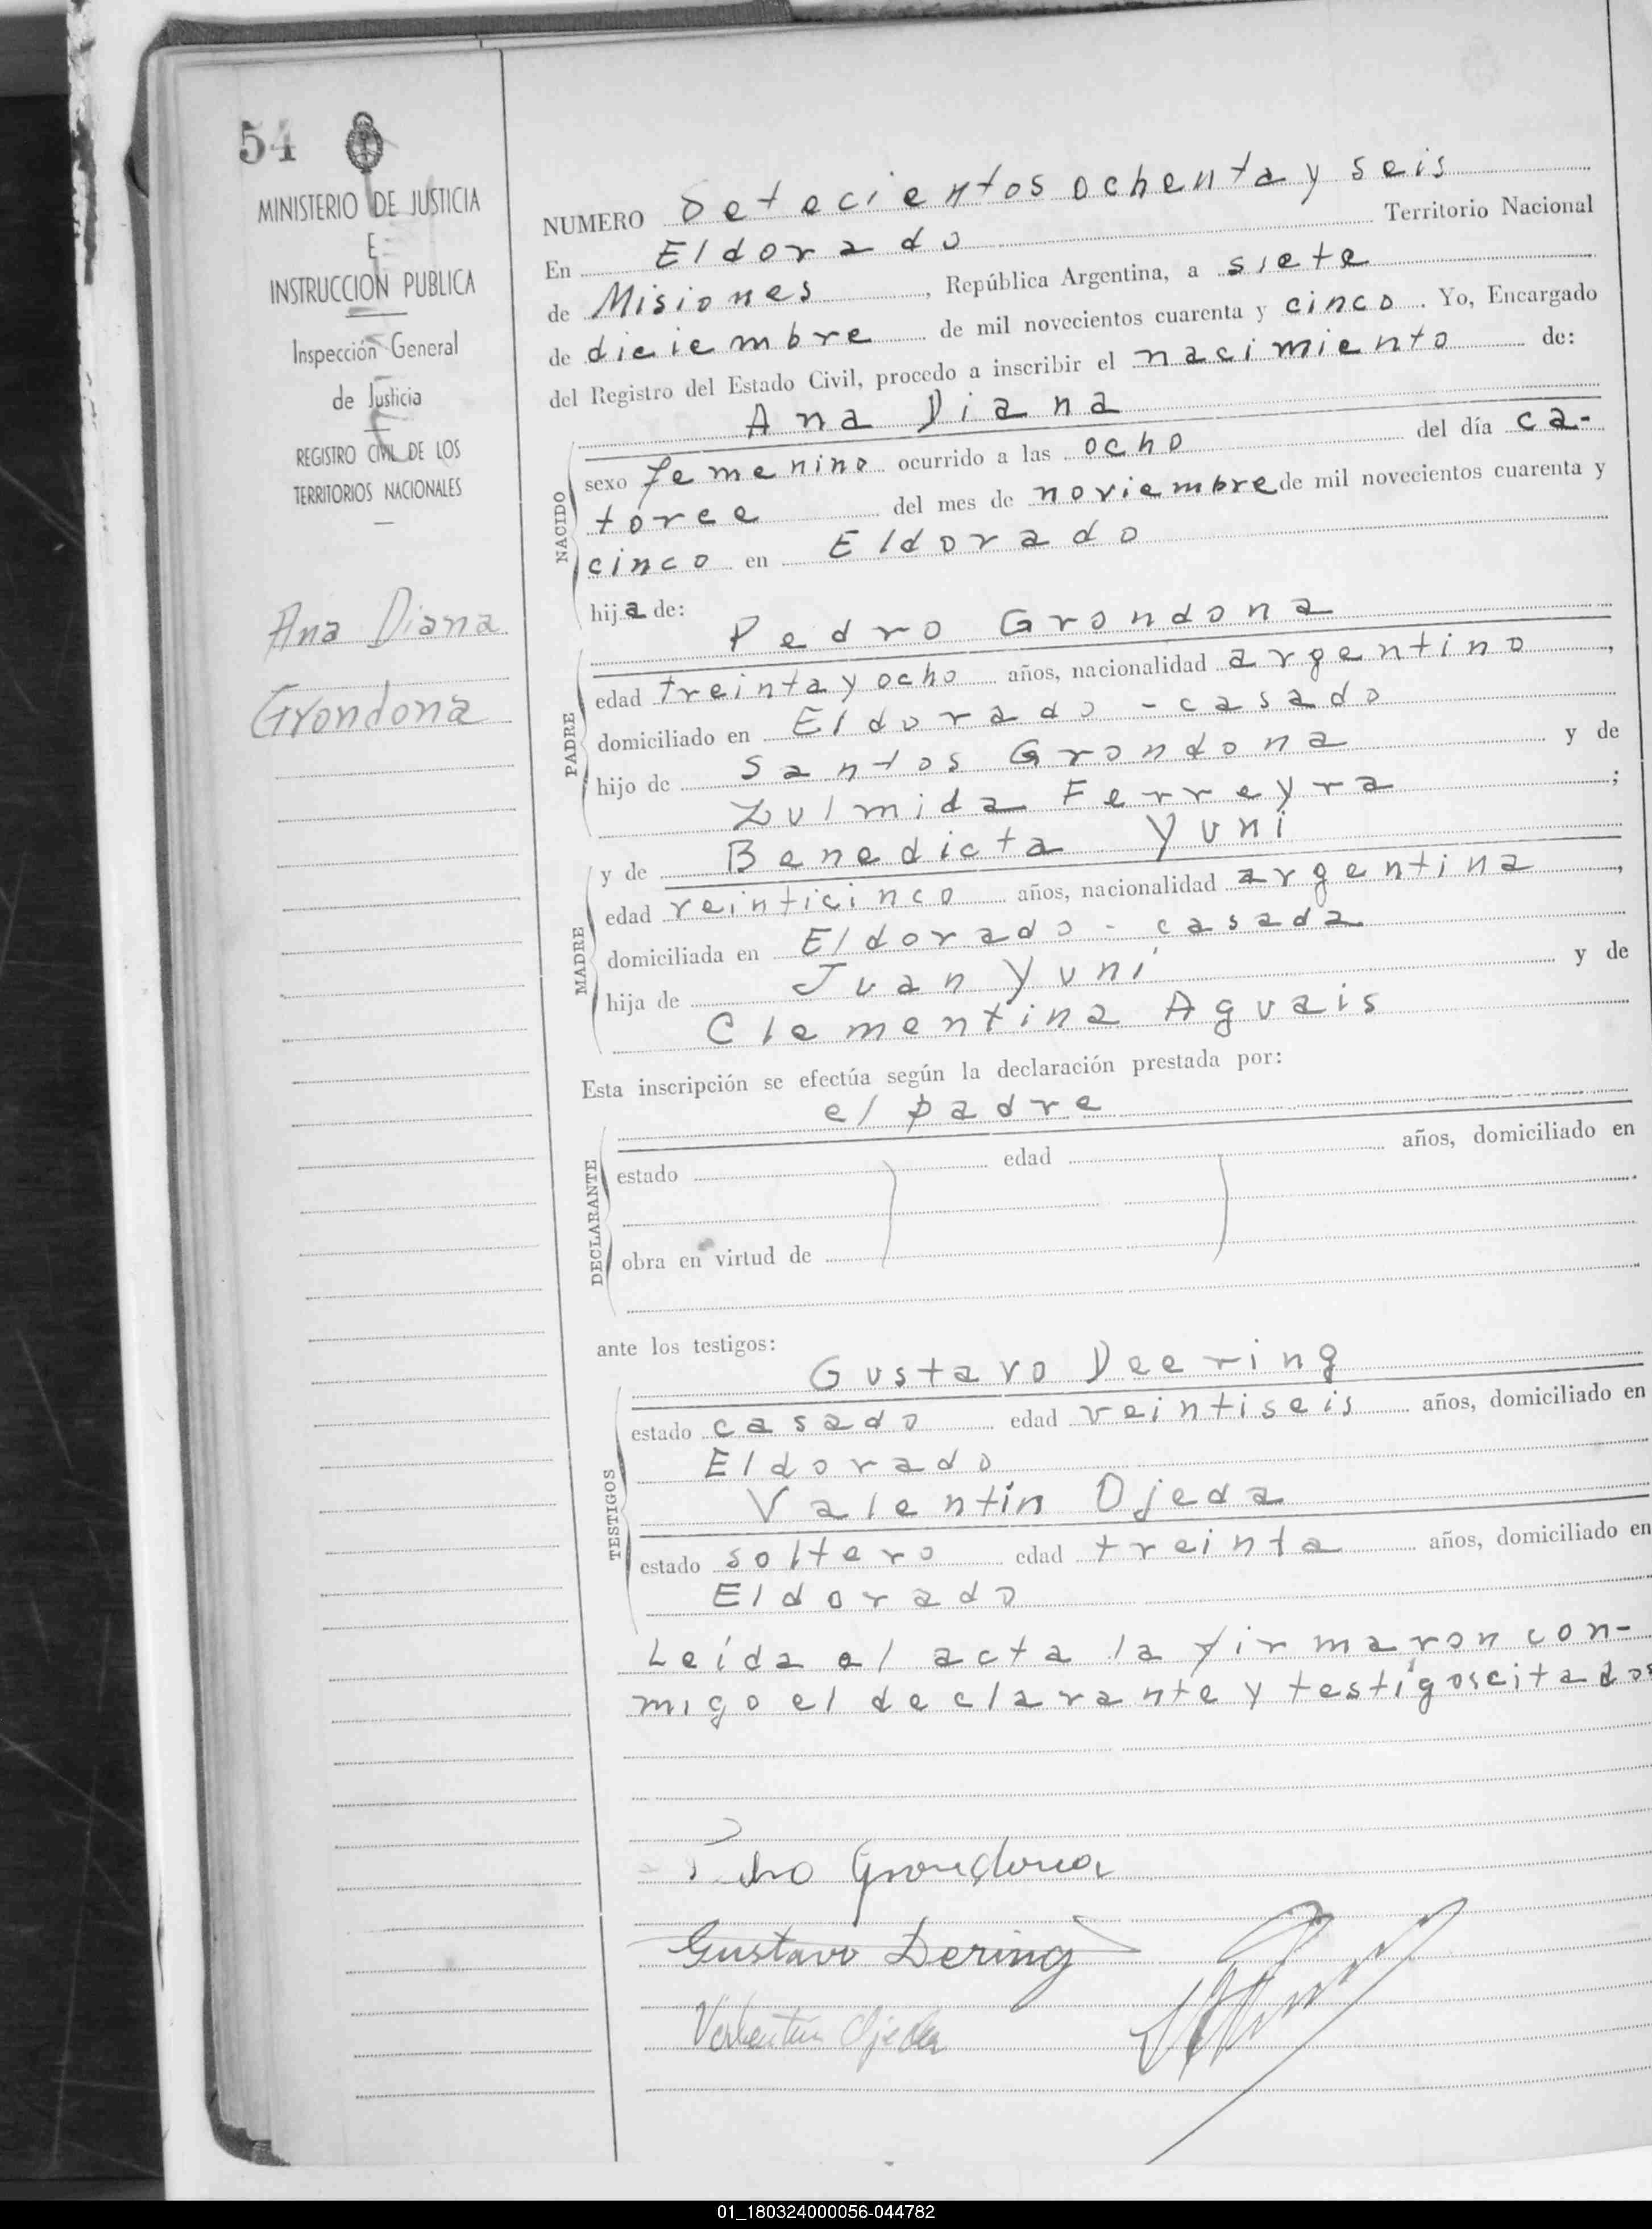 54
MINISTERIO DE JUSTICIA
E
INSTRUCCION PUBLICA
Inspección General
de Justicia
REGISTRO CIVIL DE LOS
TERRITORIOS NACIONALES
Ana Diana
Grondona
NUMERO Setecientos ochenta y seis
En Eldorado Territorio Nacional
de Misiones, República Argentina, a siete
de diciembre de mil novecientos cuarenta y cinco. Yo, Encargado
del Registro del Estado Civil, procedo a inscribir el nacimiento de:
Ana Diana
NACIDO
sexo femenino ocurrido a las ocho del día ca-
torce del mes de noviembre de mil novecientos cuarenta y
cinco en Eldorado
hija de:
Pedro Grondona
PADRE
edad treinta y ocho años, nacionalidad argentino,
domiciliado en Eldorado - casado
hijo de Santos Grondona y de
Zulmida Ferreyra;
y de Benedicta Yuni
MADRE
edad veinticinco años, nacionalidad argentina,
domiciliada en Eldorado - casada
hija de Juan Yuni y de
Clementina Aguais
Esta inscripción se efectúa según la declaración prestada por:
el padre
DECLARANTE
estado edad años, domiciliado en
obra en virtud de
ante los testigos:
Gustavo Deering
TESTIGOS
estado casado edad veintiseis años, domiciliado en
Eldorado
Valentín Ojeda
estado soltero edad treinta años, domiciliado en
Eldorado
Leída el acta la firmaron con-
migo el declarante y testigos citados
Grondona
Gustavo Dering
Valentín Ojeda
01_180324000056-044782